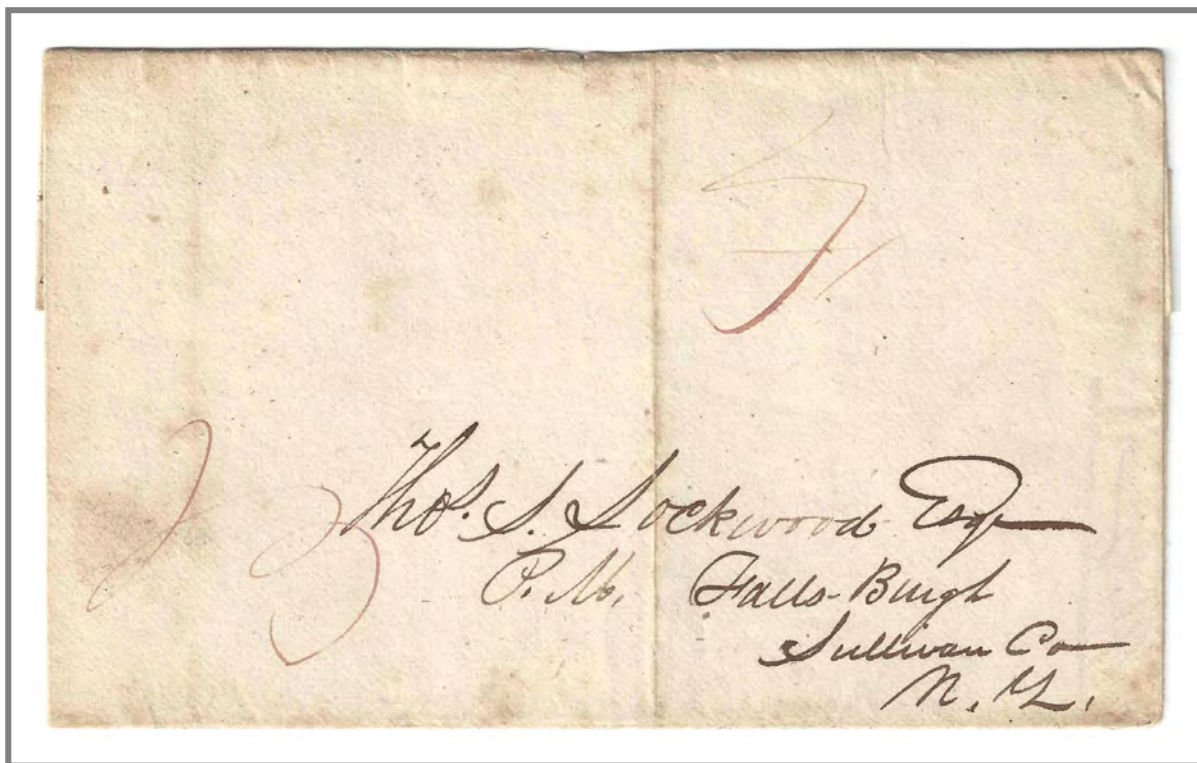 Tho S. Lockwood Esqr
P. M. Falls-Burgh
Sullivan Co
N. Y.